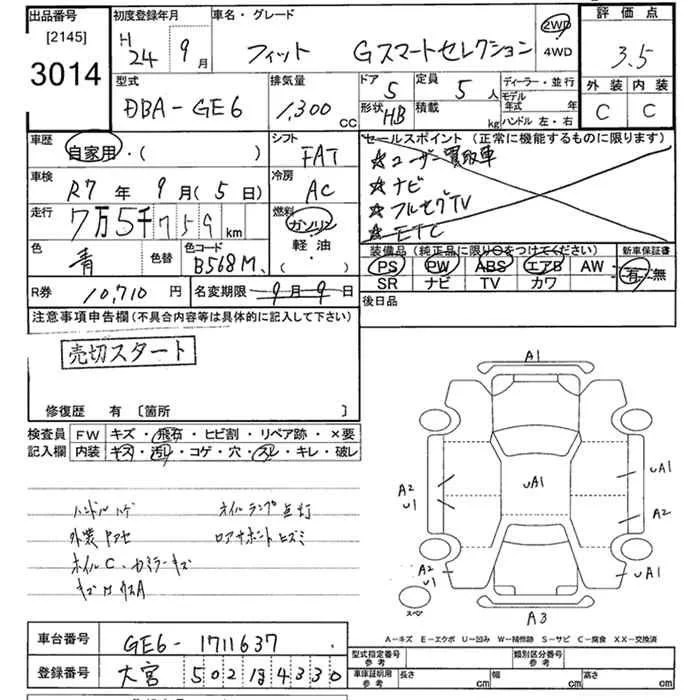 出品番号
[2145]
3014
初度登録年月
H 24 年 9 月
車名・グレード
フィット Gスマートセレクション
2WD
4WD
評価点
3.5
外装 内装
C C
型式
DBA-GE6
排気量
1,300 CC
ドア 5
形状 HB
定員 5 人
積載 kg
ディーラー・並行
モデル年式 年
ハンドル 左・右
車歴
自家用・( )
シフト
FAT
セールスポイント (正常に機能するものに限ります)
☆ユーザー買取車
☆ナビ
☆フルセグTV
☆ETC
車検
R7 年 9 月 ( 5 日)
冷房
AC
走行
7万5千759 km
燃料
ガソリン
軽油
・( )
色
青
色替
色コード
B568M
装備品 (純正品に限り○をつけてください)
PS PW ABS エアB AW
SR ナビ TV カワ
新車保証書
有・無
R券 10,710 円
名変期限 9月9日
後日品
注意事項申告欄 (不具合内容等は具体的に記入して下さい)
売切スタート
修復歴 有 [箇所 ]
検査員 FW キズ・飛石・ヒビ割・リペア跡・×要
記入欄 内装 キズ・汚れ・コゲ・穴・スレ・キレ・破レ
ハンドルハゲ オイルランプ点灯
外装
ロアサポートヒズミ
ホイルC・カミラーキズ
A1
A2
U1
UA1
UA1
A2
A2
U1
UA1
スペア
A3
A-キズ E-エクボ U-凹み W-補修跡 S-サビ C-腐食 XX-交換済
車台番号 GE6-1711637
登録番号 大宮 502 ほ 4330
型式指定番号
参考
類別区分番号
参考
車庫証明用
参考
長さ cm 幅 cm 高さ cm